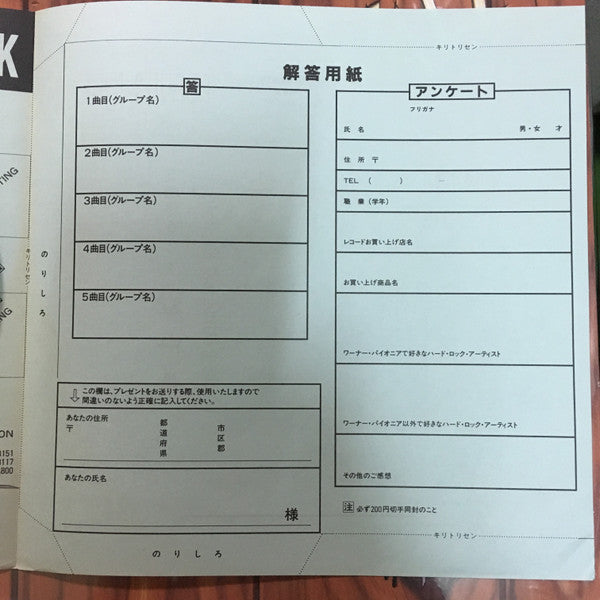 K
キリトリセン
解答用紙
答
1曲目(グループ名)
2曲目(グループ名)
3曲目(グループ名)
4曲目(グループ名)
5曲目(グループ名)
アンケート
フリガナ
氏名 男・女 才
住所 〒
TEL ( ) —
職業(学年)
レコードお買い上げ店名
お買い上げ商品名
ワーナー・パイオニアで好きなハード・ロック・アーティスト
ワーナー・パイオニア以外で好きなハード・ロック・アーティスト
その他のご感想
注 必ず200円切手同封のこと
キリトリセン
のりしろ
キリトリセン
この欄は、プレゼントをお送りする際、使用いたしますので
間違いのないよう正確に記入してください。
あなたの住所
〒
都道府県
市区郡
あなたの氏名
様
のりしろ
TING
ON
3151
3117
1800